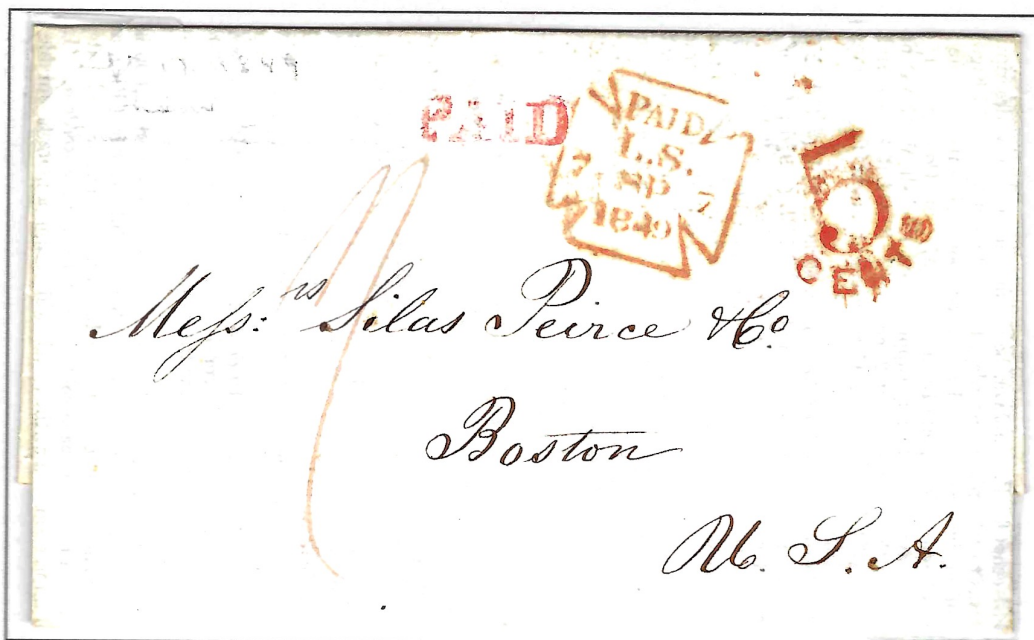 1849
PAID
PAID
L.S.
7 SP 7
1849
5
CENTS
Mess:rs Silas Peirce & Co.
Boston
U. S. A.